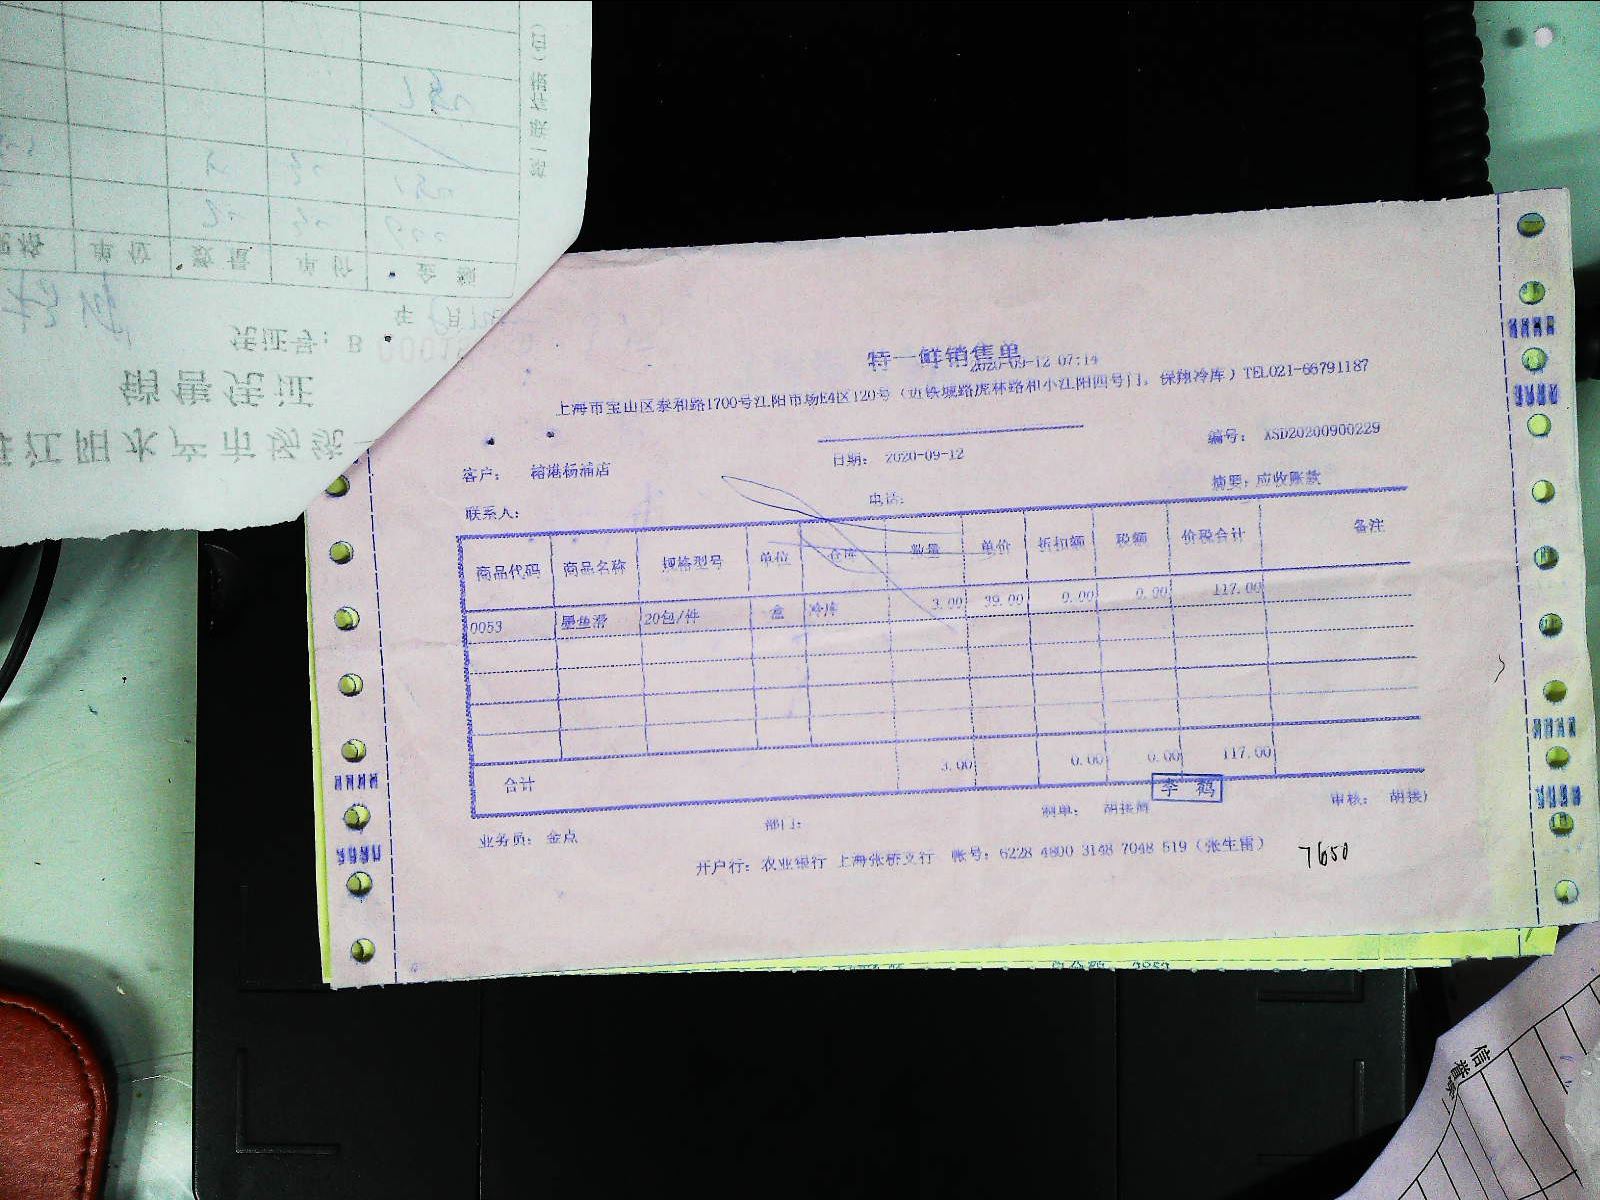 特一鲜销售单
2020-09-12 07:14
上海市宝山区泰和路1700号江阳市场E4区120号（近铁城路虎林路和小江阳四号门，保翔冷库）TEL021-66791187
客户： 榕港杨浦店 日期： 2020-09-12 编号： XSD20200900229
联系人： 电话： 摘要：应收账款
商品代码 商品名称 规格型号 单位 仓库 数量 单价 折扣额 税额 价税合计 备注
0053 墨鱼滑 20包/件 盒 冷库 3.00 39.00 0.00 0.00 117.00
合计 3.00 0.00 0.00 117.00
李 鹤
业务员： 金点 部门： 制单： 审核：
开户行：农业银行 上海张桥支行 帐号：6228 4800 3148 7048 519（张生雷）
7650
江阳水产市场统一
销售凭证
凭证号：B
年 月
单位 数量 单价 金额
第一联 存根（白）
信誉